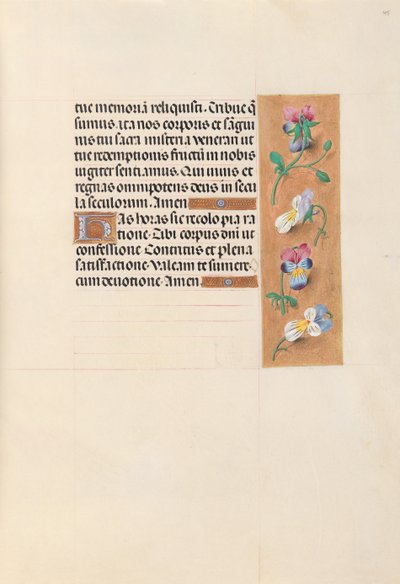 45
tue memoriā reliquisti. Tribue q̄
sumus, ita nos corporis et sāgui
nis tui sacra misteria venerari ut
tue redemptionis fructū in nobis
iugiter sentiamus. Qui uiuis et
regnas omnipotens deus in secu
la seculorum. Amen
Has horas sic recolo pia ra
tione. Tibi corpus dn̄i ut
confessione Contritus et plena
satisfactione. Valeam te sumere
cum deuotione. Amen.